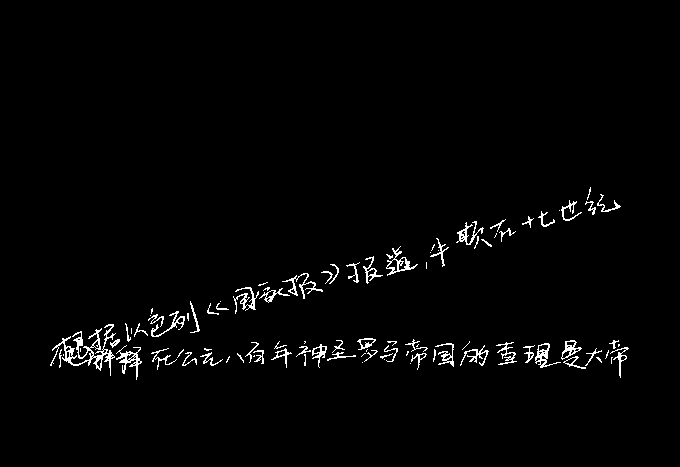 根据以色列《国家报》报道,牛顿在十七世纪
解释在公元八百年神圣罗马帝国的查理曼大帝